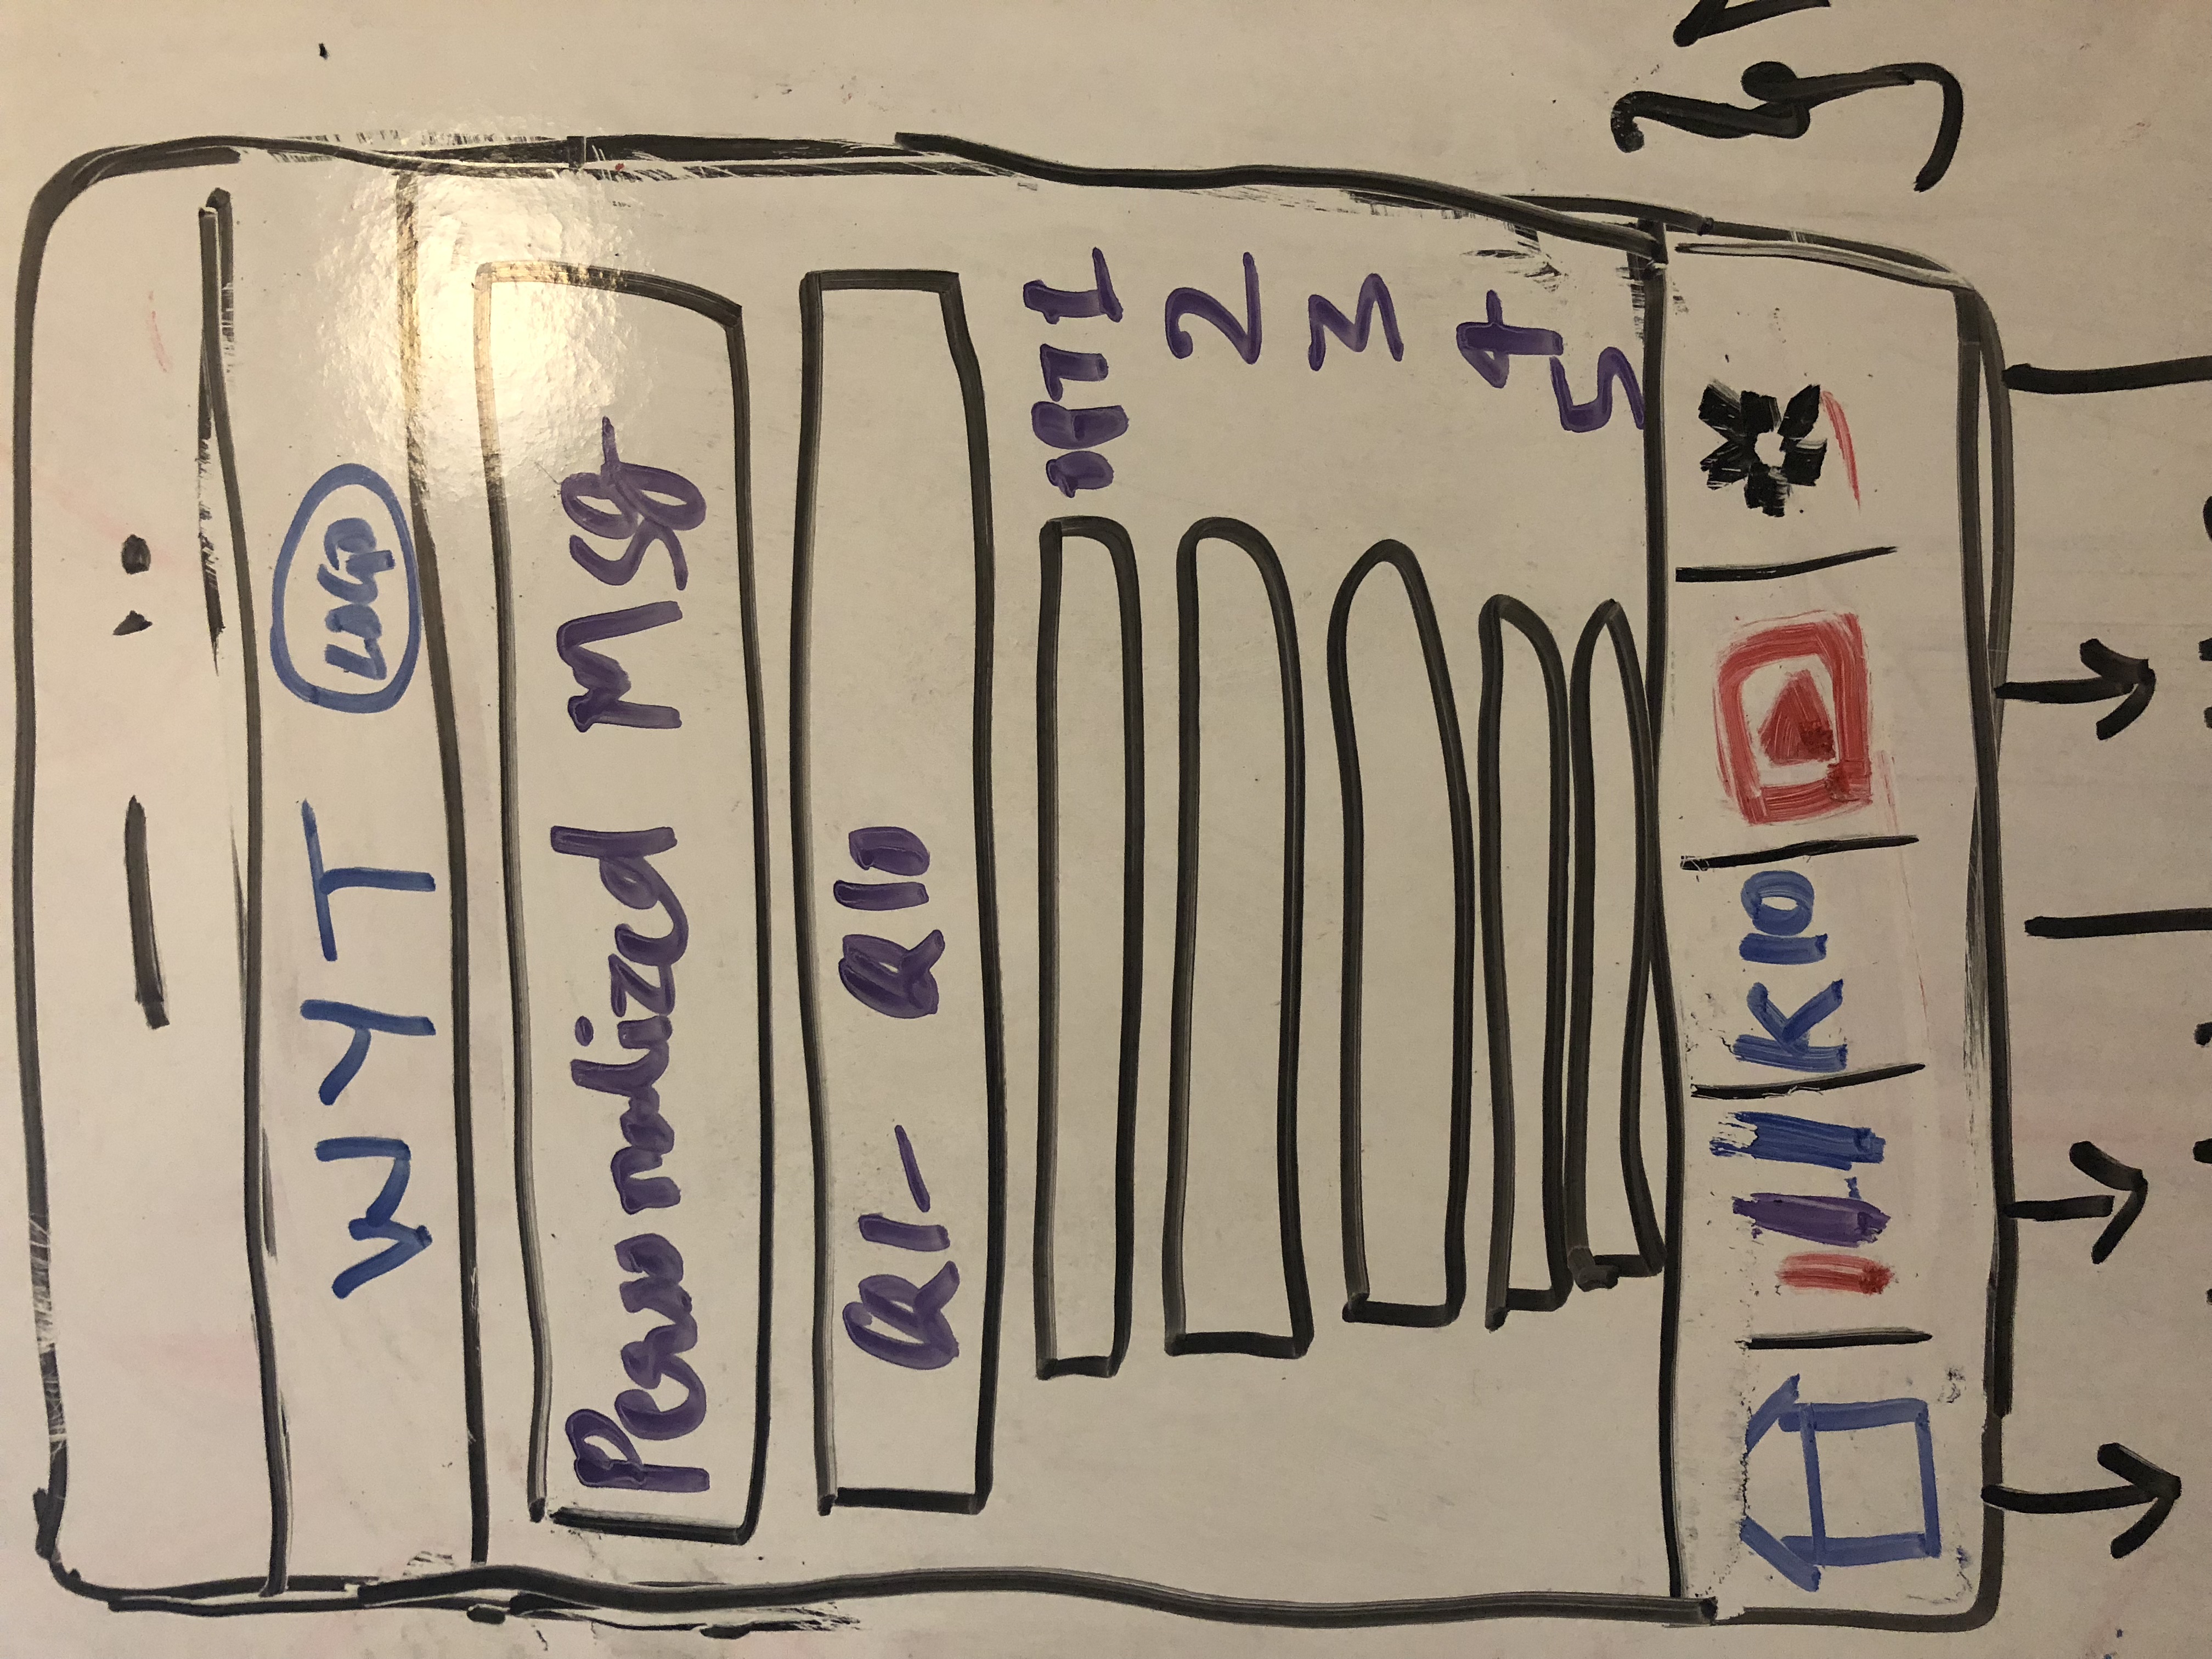 WYT LOGO
Personalized Msg
Q1- Q10
OPT 1
2
3
4
5
K10